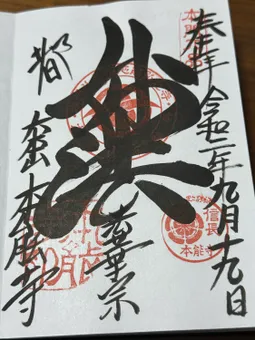 奉拝 令和二年九月十九日
妙法
華宗
都 大本山 本能寺
信長
本能寺